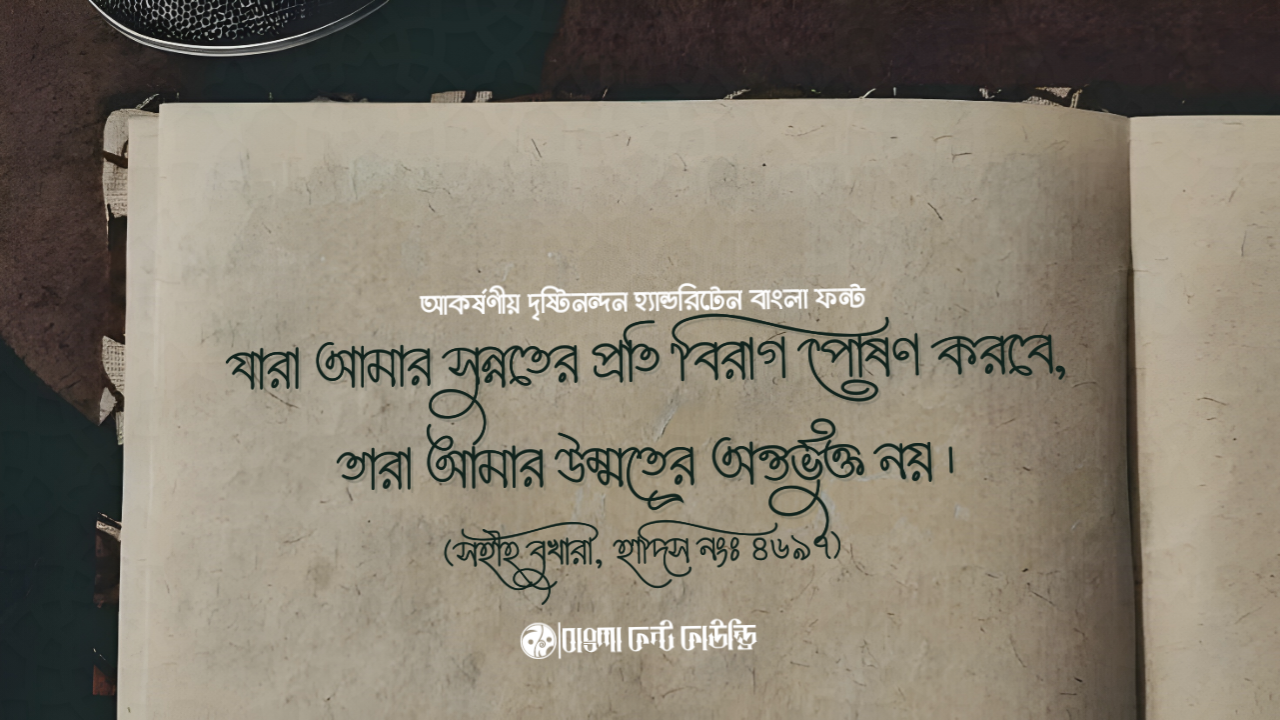 আকর্ষণীয় দৃষ্টিনন্দন হ্যান্ডরিটেন বাংলা ফন্ট
যারা আমার সুন্নতের প্রতি বিরাগ পোষণ করবে,
তারা আমার উম্মতের অন্তর্ভুক্ত নয়।
(সহীহ বুখারী, হাদিস নংঃ ৪৬৯৭)
বাংলা ফন্ট ফাউন্ড্রি